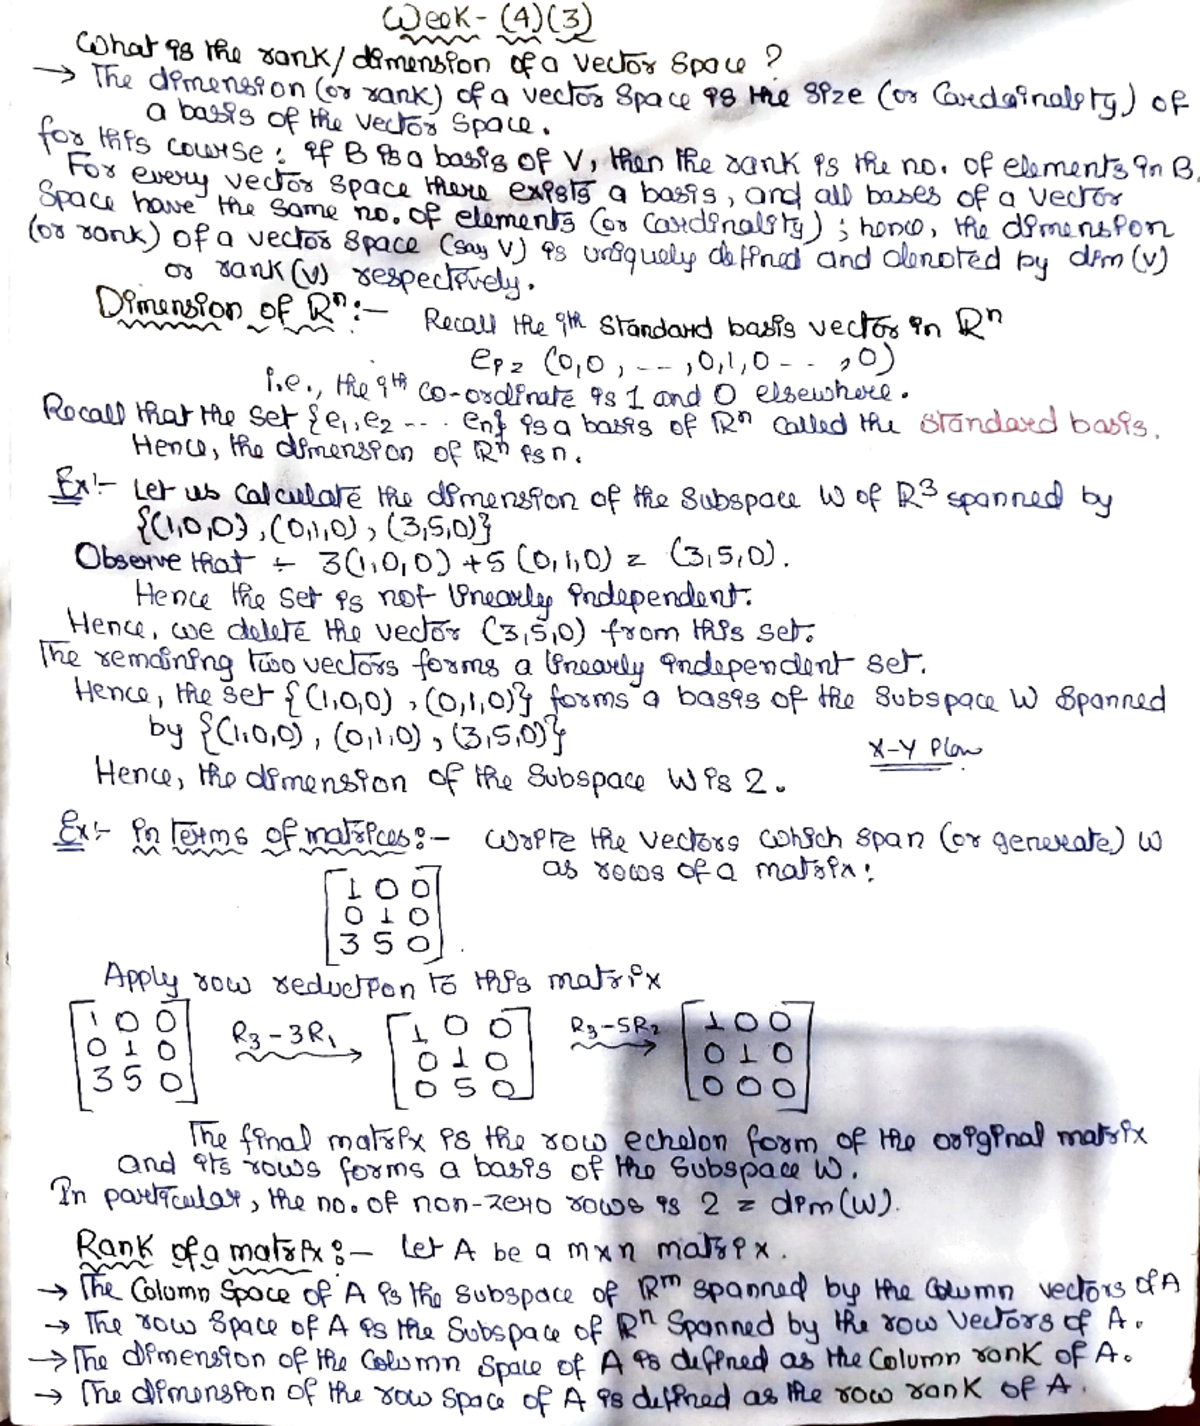 Week - (4)(3)
What is the rank/dimension of a vector space ?
→ The dimension (or rank) of a vector space is the size (or Cardinality) of
a basis of the vector space.
for this course : if B is a basis of V, then the rank is the no. of elements in B.
For every vector space there exists a basis, and all bases of a vector
space have the same no. of elements (or cardinality) ; hence, the dimension
(or rank) of a vector space (say V) is uniquely defined and denoted by dim(v)
or rank(v) respectively.
Dimension of Rⁿ :- Recall the ith standard basis vector in Rⁿ
ei = (0,0, --- ,0,1,0 - - - ,0)
i.e., the ith co-ordinate is 1 and 0 elsewhere.
Recall that the set {e1, e2 --- en} is a basis of Rⁿ called the standard basis.
Hence, the dimension of Rⁿ is n.
Ex:- Let us calculate the dimension of the subspace W of R³ spanned by
{(1,0,0), (0,1,0), (3,5,0)}
Observe that ÷ 3(1,0,0) + 5(0,1,0) = (3,5,0).
Hence the set is not linearly independent.
Hence, we delete the vector (3,5,0) from this set.
The remaining two vectors forms a linearly independent set.
Hence, the set {(1,0,0), (0,1,0)} forms a basis of the subspace W spanned
by {(1,0,0), (0,1,0), (3,5,0)}
X-Y Plan
Hence, the dimension of the subspace W is 2.
Ex:- in terms of matrices :- write the vectors which span (or generate) W
as rows of a matrix :
[1 0 0
0 1 0
3 5 0]
Apply row reduction to this matrix
[1 0 0 R3-3R1 [1 0 0 R3-5R2 [1 0 0
0 1 0 → 0 1 0 → 0 1 0
3 5 0] 0 5 0] 0 0 0]
The final matrix is the row echelon form of the original matrix
and its rows forms a basis of the subspace W.
In particular, the no. of non-zero rows is 2 = dim(W).
Rank of a matrix :- Let A be a mxn matrix.
→ The Column Space of A is the subspace of Rᵐ spanned by the column vectors of A
→ The row space of A is the subspace of Rⁿ spanned by the row vectors of A.
→ The dimension of the column space of A is defined as the Column rank of A.
→ The dimension of the row space of A is defined as the row rank of A.